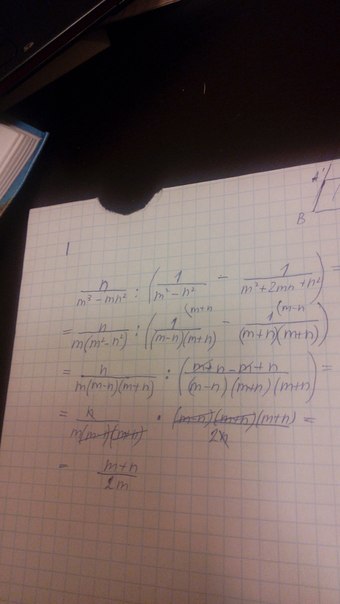 A'
B
1
n/(m³ - mn²) : (1/(m² - n²) - 1/(m² + 2mn + n²)) =
= n/(m(m² - n²)) : (1 (m+n/((m-n)(m+n)) - 1 (m-n/((m+n)(m+n))) =
= n/(m(m-n)(m+n)) : ((m+n-m+n)/((m-n)(m+n)(m+n))) =
= n/(m(m-n)(m+n)) · ((m-n)(m+n)(m+n))/(2n) =
= (m+n)/(2m)